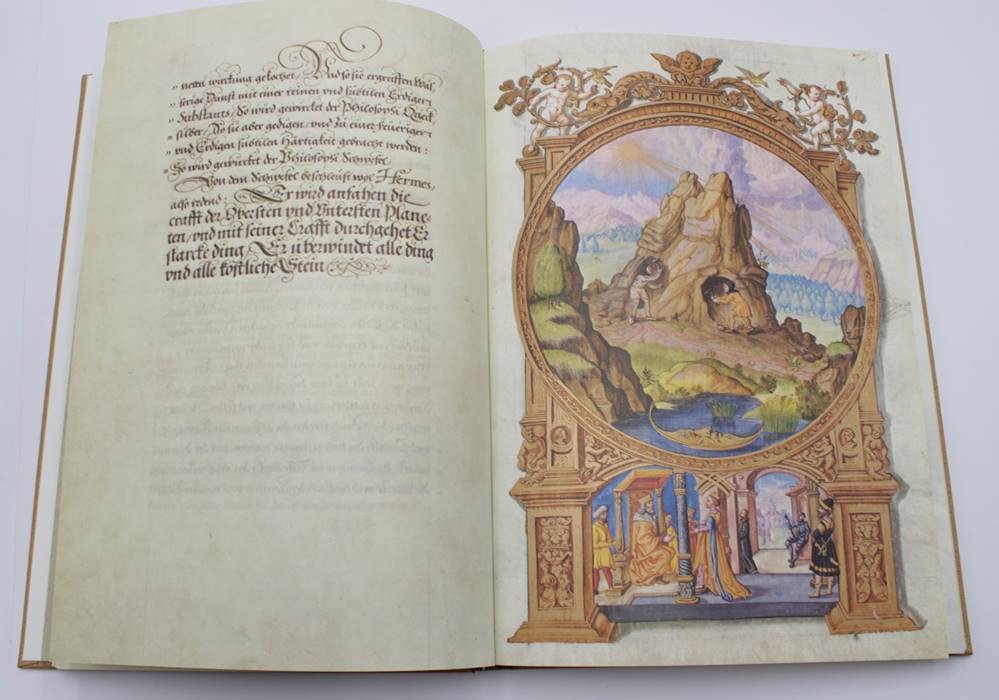 „ neten wirckung gekochet / Und so sie ergreiffen was
„ serige Dunst mit einer reinen und subtilen Erdigen
„ Substantz / So wird gewircket der Philosophj Queck
„ silber / Do sie aber gedigen / und zu einer feuerigen
„ und Erdigen subtilen Härtigkeit gebracht werden :
„ So wird gewircket der Philosophj Schwefel
Von dem Schwefel beschleust wol Hermes,
also redend : Er wird anfahen die
crafft der Obersten vnd Vntersten Plane-
ten, vnd mit seiner Crafft durchgehet Er
starcke ding / Er überwindet alle ding
vnd alle köstliche Stein